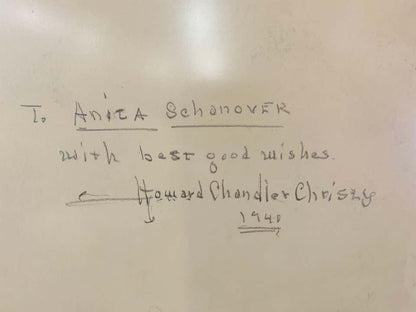 To Anita Schanover
with best good wishes.
Howard Chandler Christy
1940